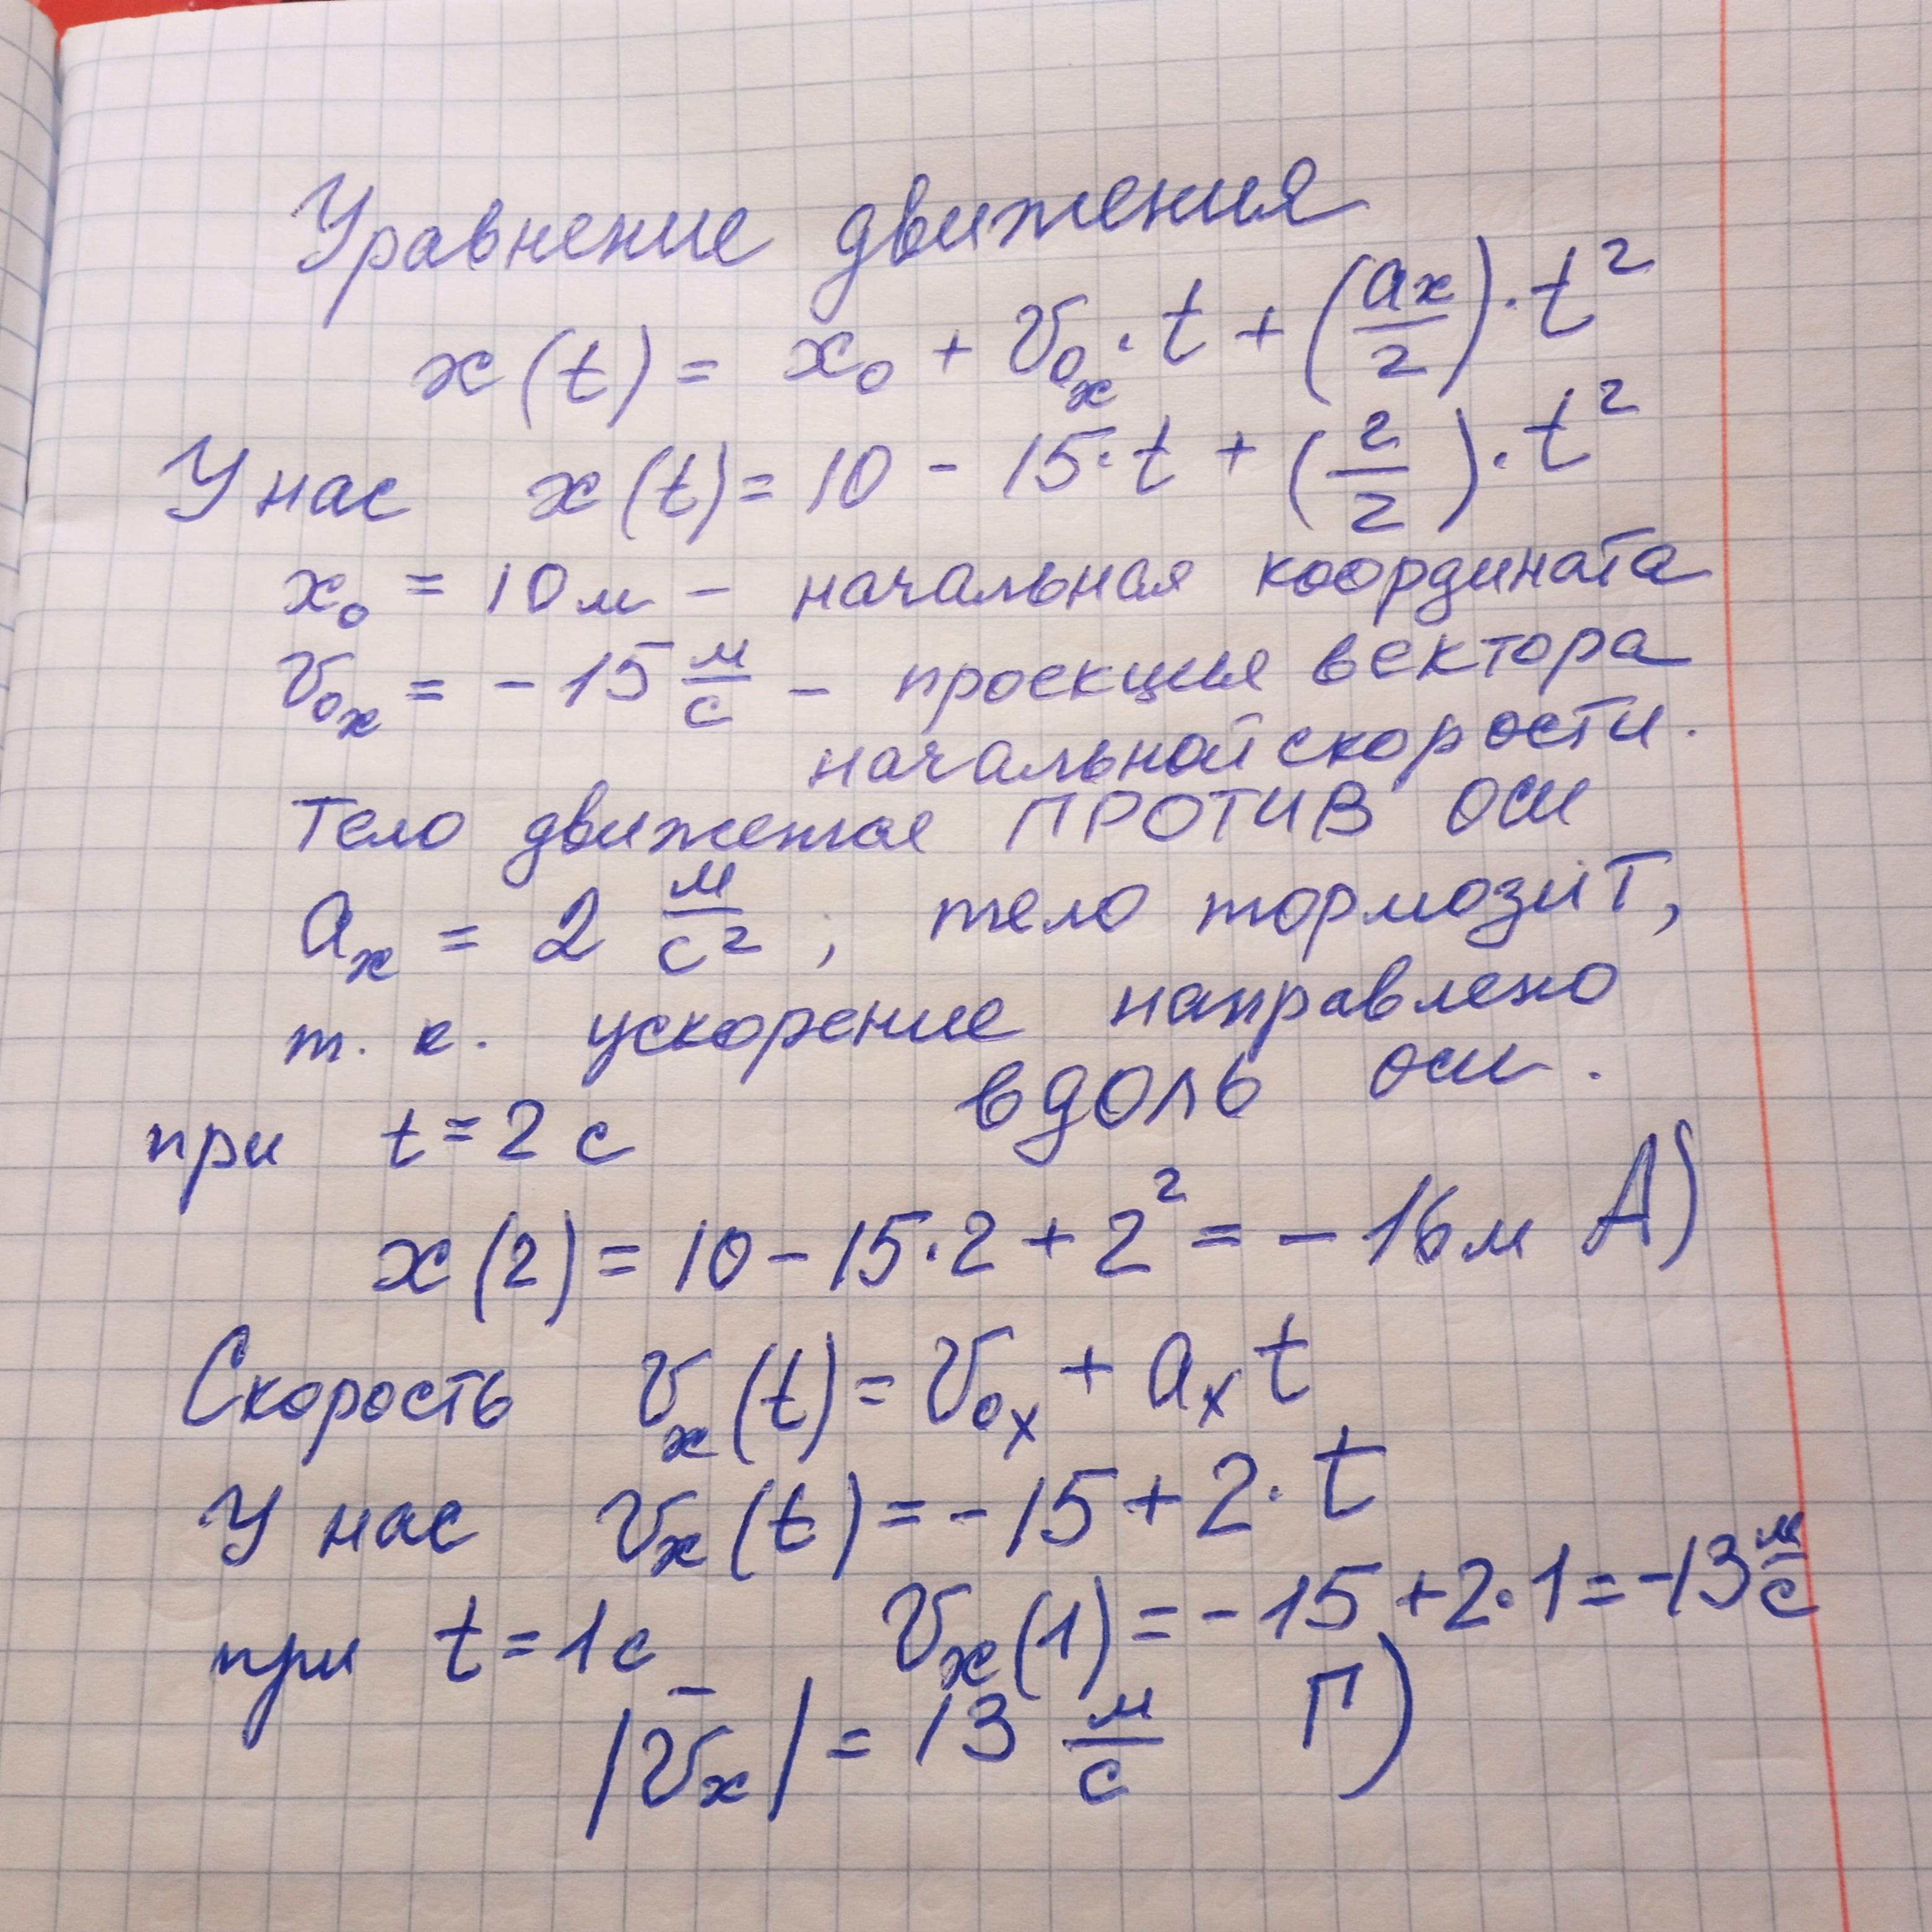 Уравнение движения
x(t) = x₀ + v₀ₓ · t + (aₓ/2) · t²
У нас x(t) = 10 - 15 · t + (2/2) · t²
x₀ = 10 м - начальная координата
v₀ₓ = - 15 м/с - проекция вектора
начальной скорости.
Тело движется ПРОТИВ оси
aₓ = 2 м/с² ; тело тормозит,
т. к. ускорение направлено
вдоль оси.
при t = 2 с
x(2) = 10 - 15 · 2 + 2² = - 16 м А)
Скорость vₓ(t) = v₀ₓ + aₓ t
У нас vₓ(t) = - 15 + 2 · t
при t = 1 с vₓ(1) = - 15 + 2 · 1 = - 13 м/с
|v̅ₓ| = 13 м/с Г)